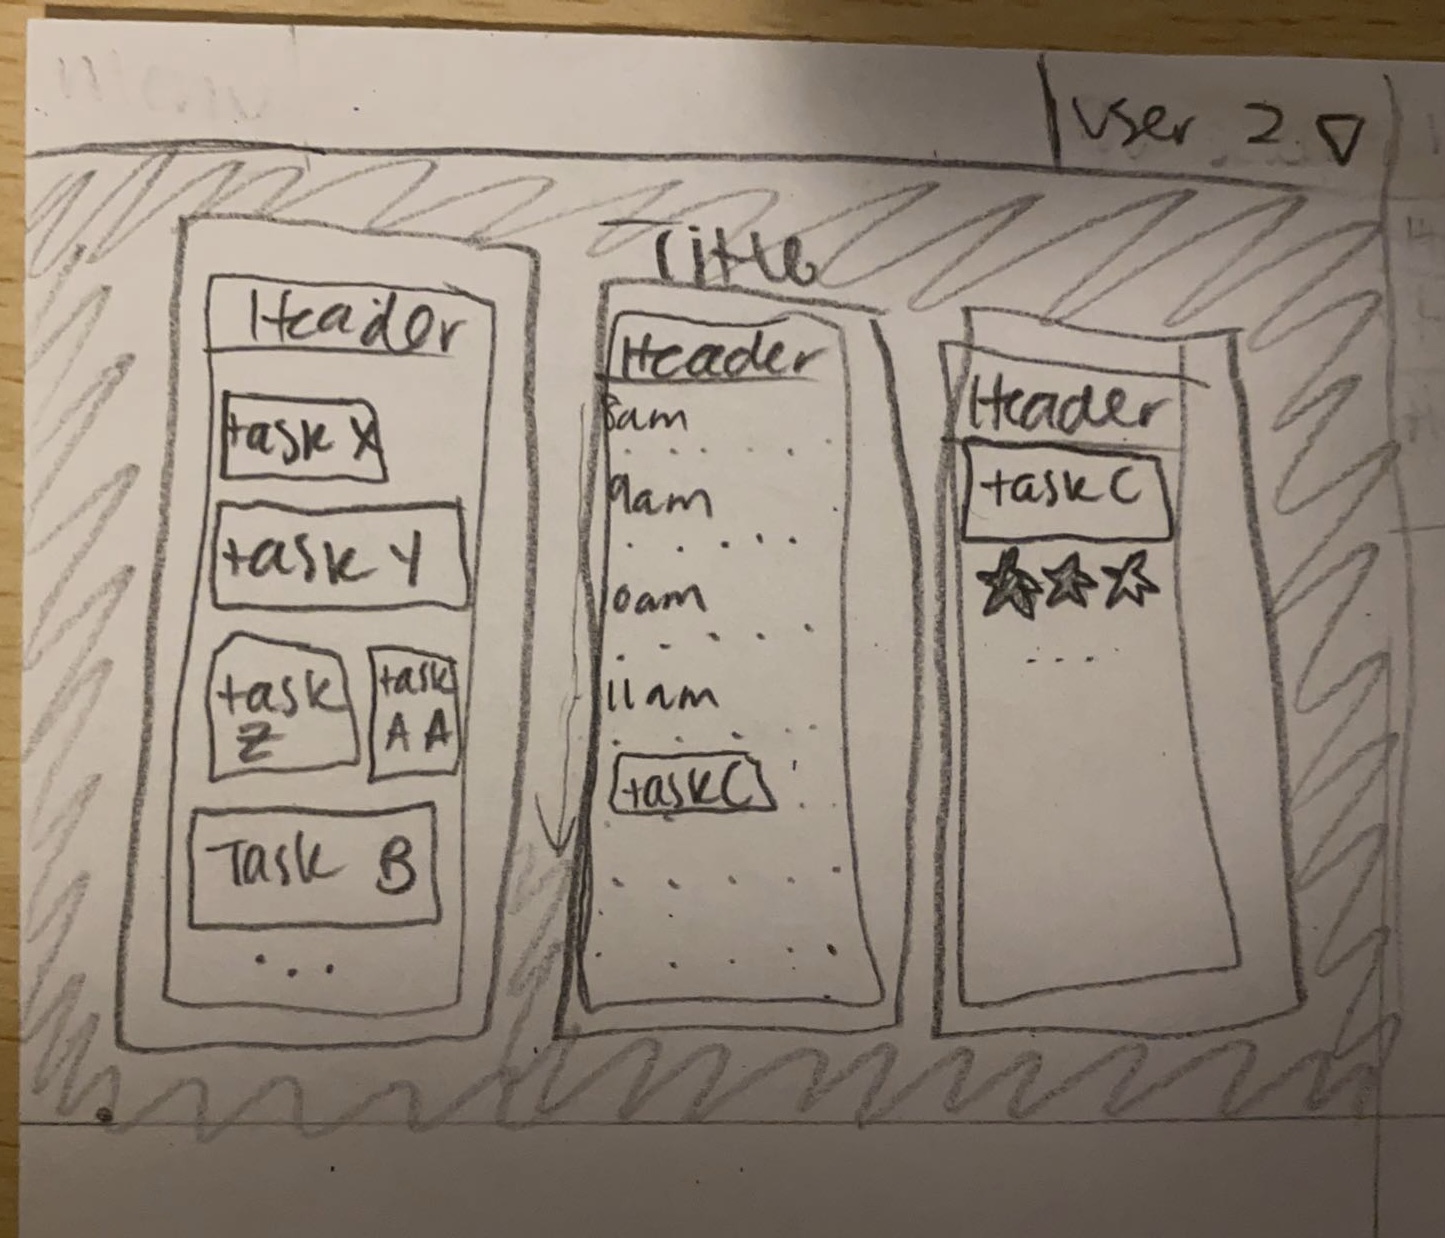 User 2
Title
Header
task X
task Y
task
Z
task
AA
Task B
...
Header
8am
9am
10am
11am
task C
Header
task C
....